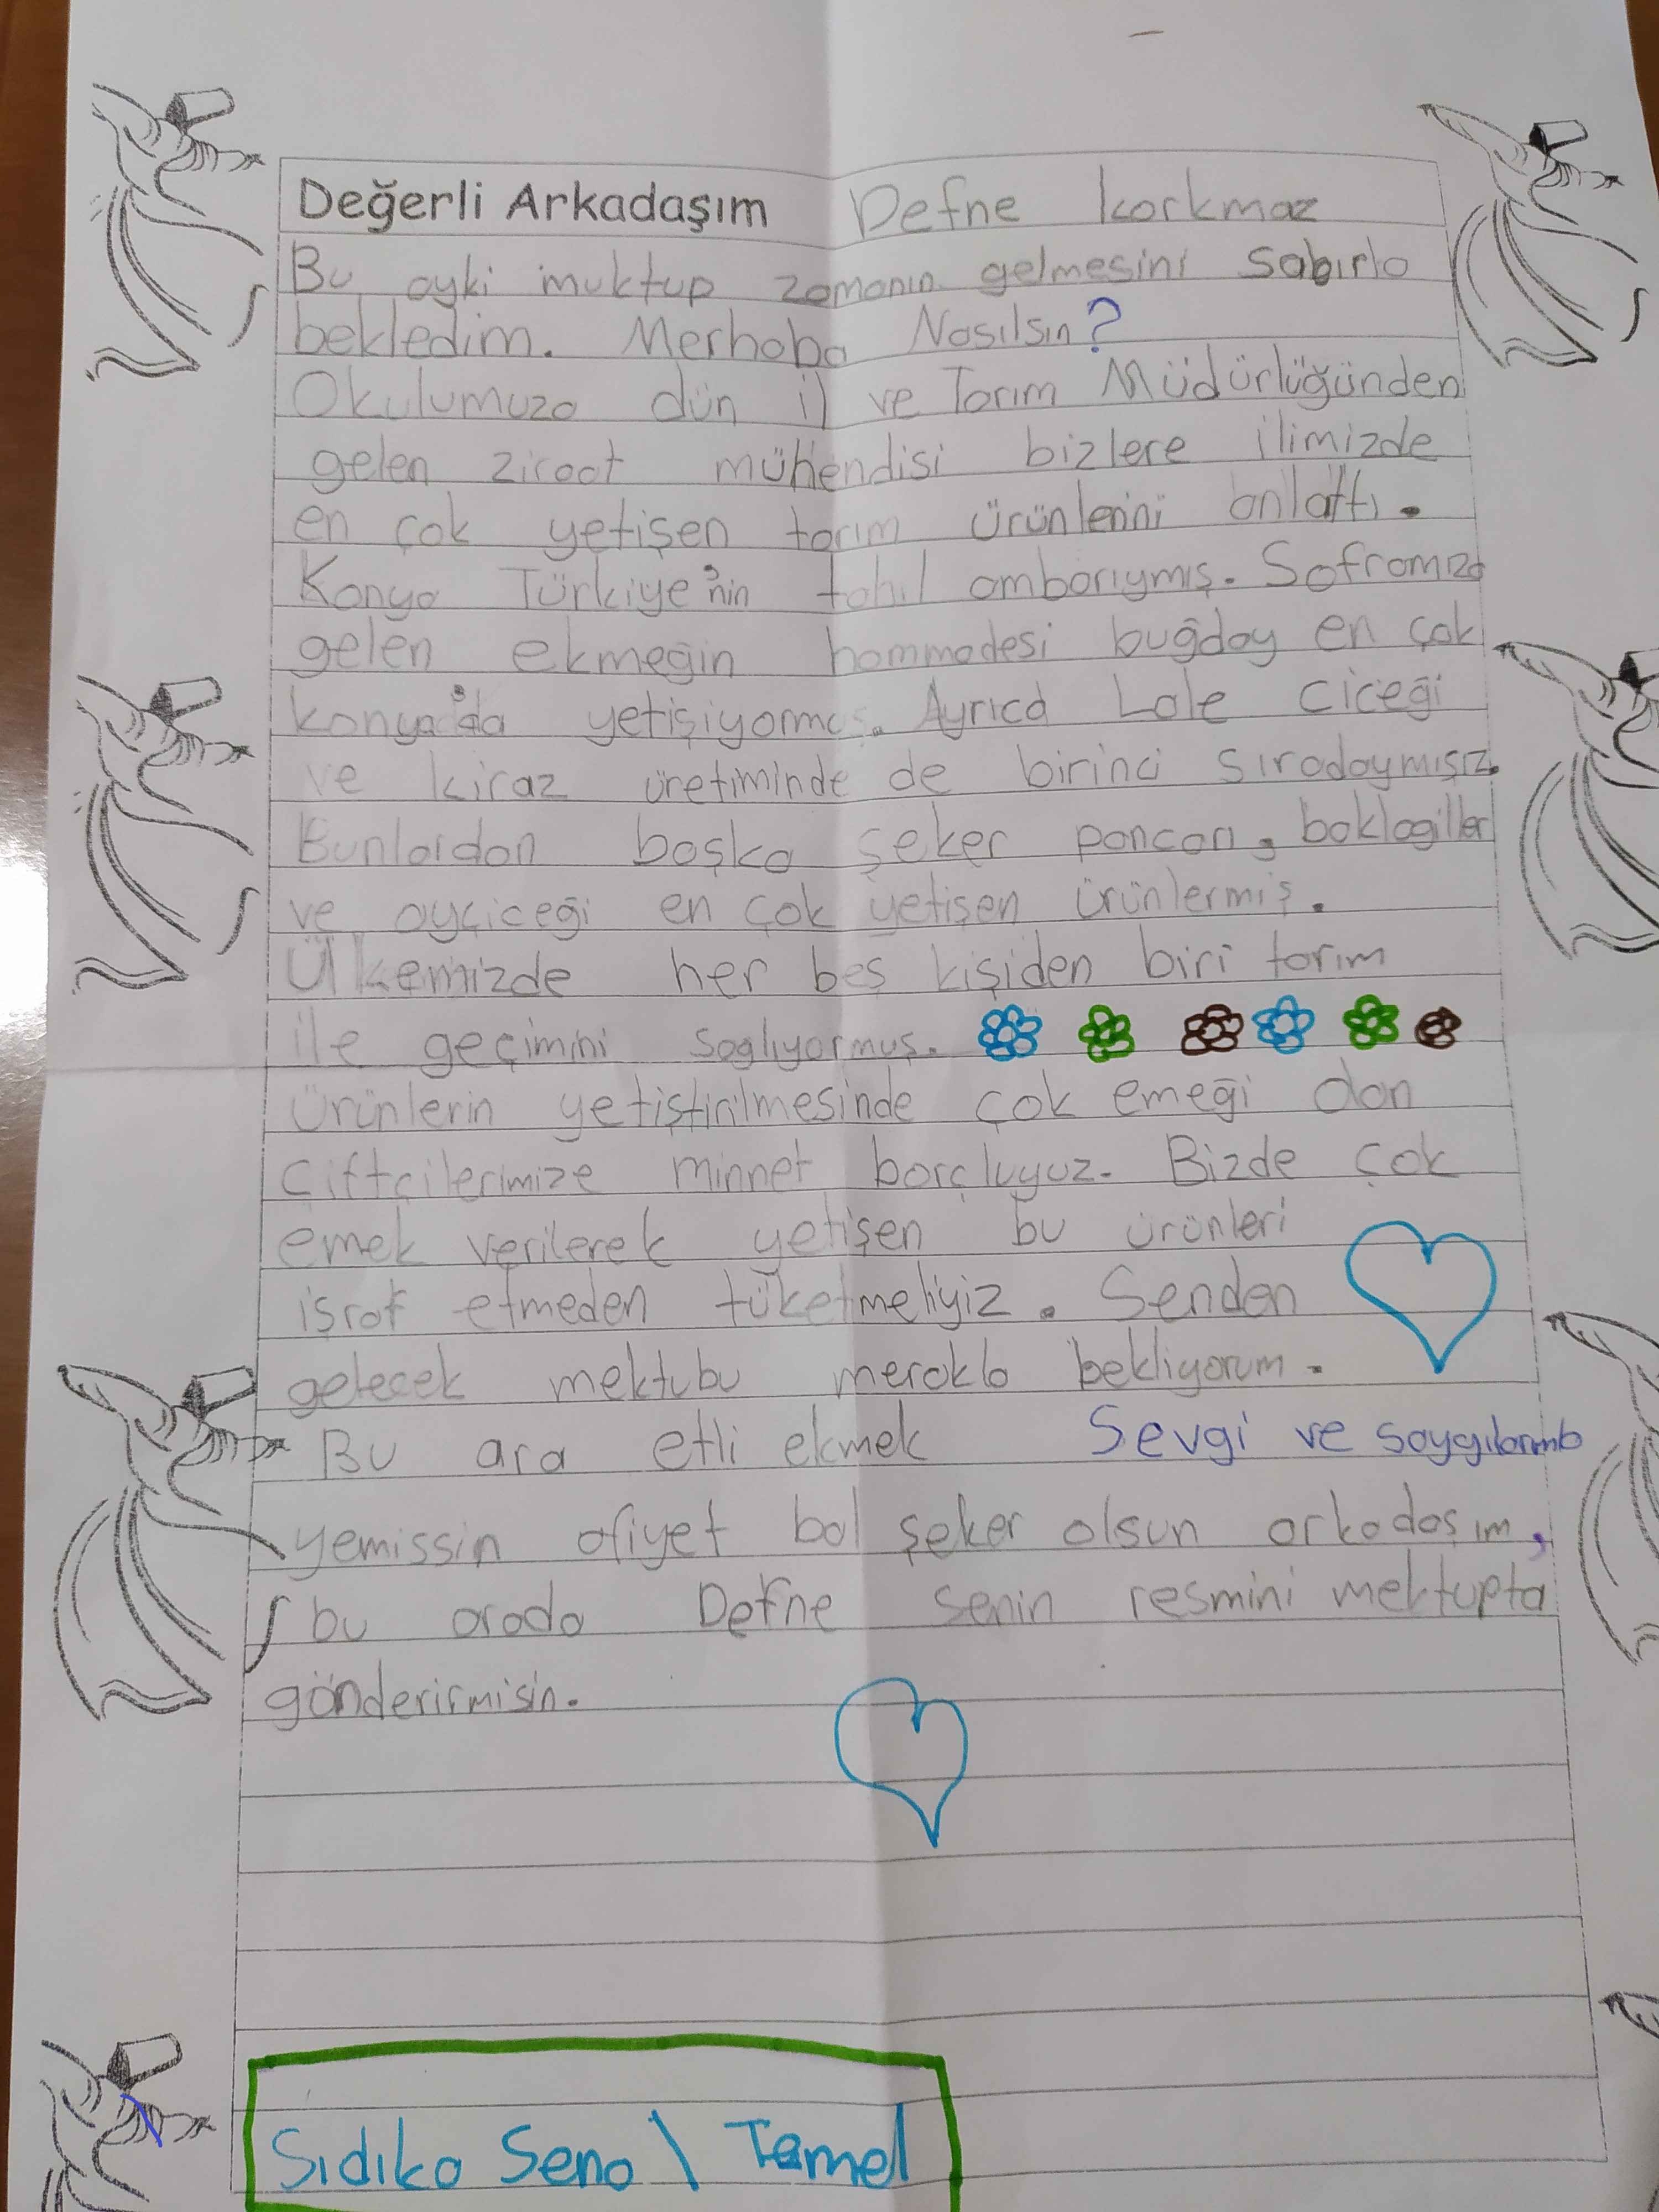 Değerli Arkadaşım Defne korkmaz
Bu ayki muktup zamanın gelmesini sabırla
bekledim. Merhaba Nasılsın?
Okulumuza dün il ve Tarım Müdürlüğünden
gelen ziraat mühendisi bizlere ilimizde
en çok yetişen tarım ürünlerini anlattı.
Konya Türkiye'nin tahıl ambarıymış. Soframıza
gelen ekmeğin hammadesi buğday en çok
konya'da yetişiyormuş. Ayrıca Lale ciceği
ve kiraz üretiminde de birinci sıradaymışız.
Bunlardan başka şeker pancarı, baklagiller
ve ayçiceği en çok yetişen ürünlermiş.
Ülkemizde her beş kişiden biri tarım
ile geçimini sağlıyormuş.
ürünlerin yetiştirilmesinde çok emeği olan
çiftçilerimize minnet borçluyuz. Bizde çok
emek verilerek yetişen bu ürünleri
işraf etmeden tüketmeliyiz. Senden
gelecek mektubu merakla bekliyorum.
Bu ara etli ekmek Sevgi ve saygılarımla
yemissin afiyet bal şeker olsun arkadaşım,
bu arada Defne senin resmini mektupta
gönderirmisin.
Sıdıka Sena \ Temel